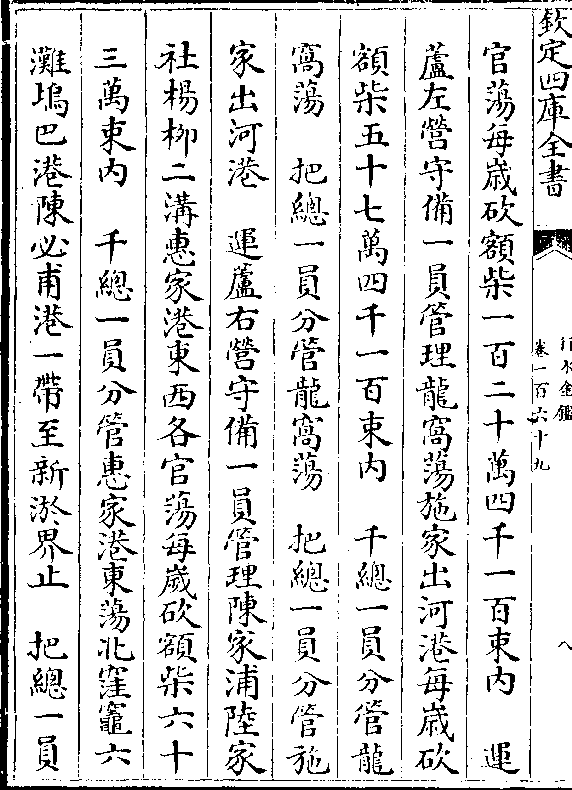 欽定四庫全書
行水金鑑
卷一百六十九
八
官蕩每歲砍額柴一百二十萬四千一百束内　運
蘆左營守備一員管理龍窩蕩施家出河港每歲砍
額柴五十七萬四千一百束内　千總一員分管龍
窩蕩　把總一員分管龍窩蕩　把總一員分管施
家出河港　運蘆右營守備一員管理陳家浦陸家
社楊柳二溝惠家港東西各官蕩每歲砍額柴六十
三萬束内　千總一員分管惠家港東蕩北窪竈六
灘塢巴港陳必甫港一帶至新淤界止　把總一員